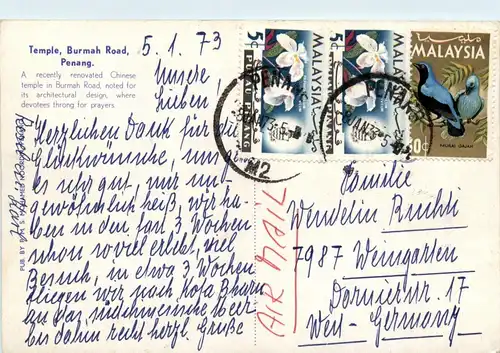 Temple, Burmah Road,
Penang.
A recently renovated Chinese
temple in Burmah Road, noted for
its architectural design, where
devotees throng for prayers.
5.1.73
Unsere
Lieben!
Herzlichen Dank für die
Glückwünsche, uns
es sehr gut, nur un-
gewöhnlich heiß, wir ha-
ben in den fast 3 Wochen
schon soviel erlebt, viel
Besuch, in etwa 3 Wochen
fliegen wir nach Kota Bharu
an das südchinesische Meer
bis dahin recht herzl. Grüße
PUB. BY
AIR MAIL
5c
PULAU PINANG
MALAYSIA
5c
PULAU PINANG
MALAYSIA
MALAYSIA
10c
PENANG
M2
PENANG
Familie
Wendelin Ruchti
7987 Weingarten
Dornierstr. 17
West-Germany